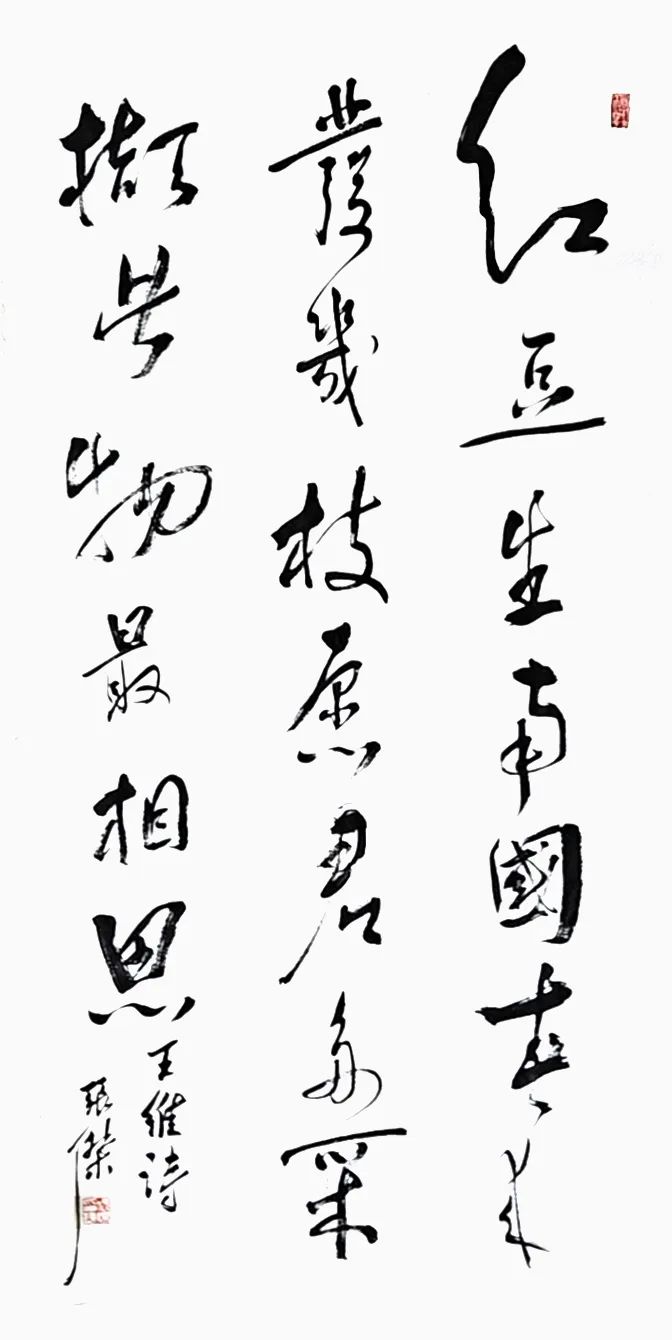 红豆生南國春来
發幾枝愿君多采
撷此物最相思
王維诗
張傑